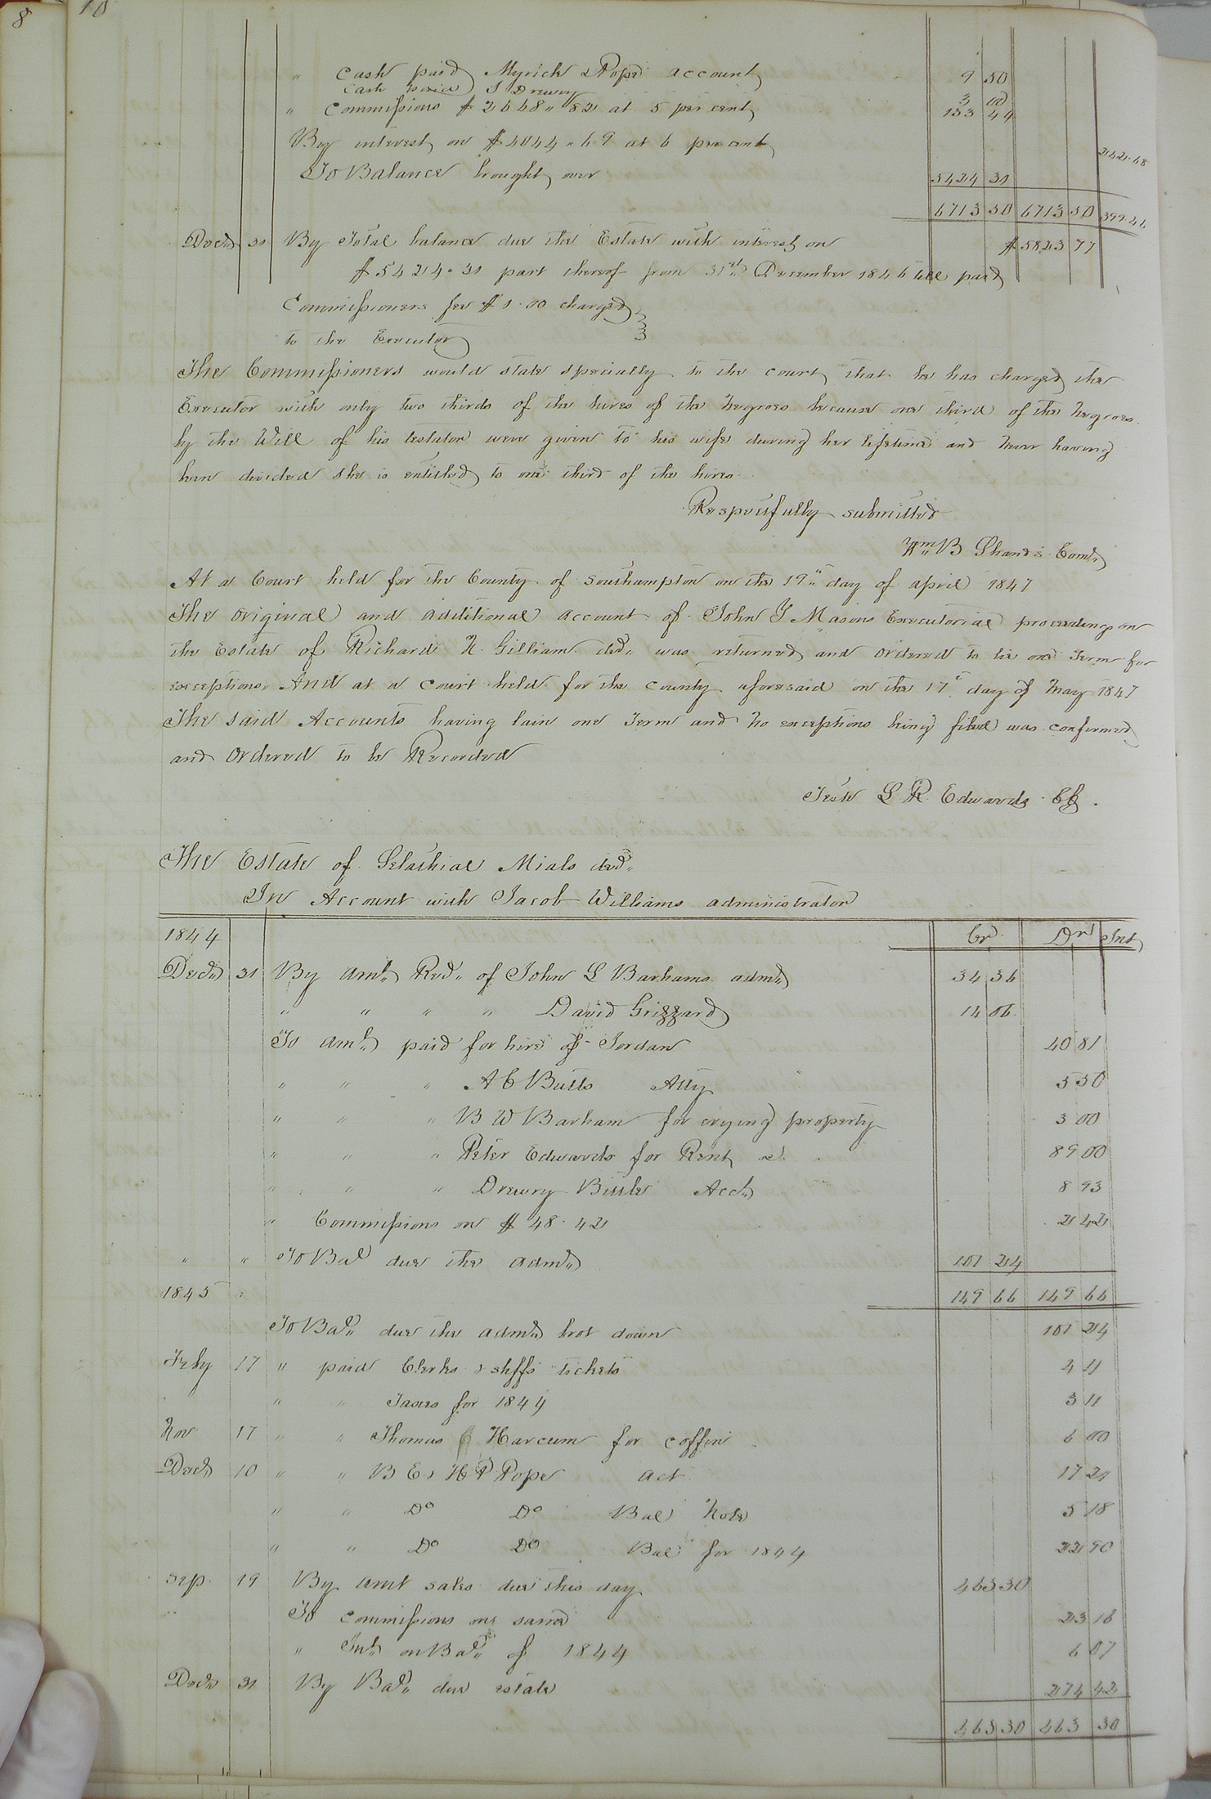 8
10
" Cash paid Myrick & Pope account 9 50
Cash paid J Drewry 3 00
" Commissions $2668"82 at 5 per cent 133 44
By interest on $4044"69 at 6 per cent 242.68
To Balance brought over 5424 31
6713 50 6713 50 399.46
Decr 31 By Total balance due the Estate with interest on $5823 77
$5424.31 part thereof from 31st December 1846 till paid
Commissioners fee $1.00 charged
to the Executor
The Commissioners would state specially to the court, that he has charged the
Executor with only two thirds of the hires of the Negroes because one third of the Negroes
by the Will of his testator were given to his wife during her lifetime and never having
been divided she is entitled to one third of the hires
Respectfully submitted
Wm B Shands Comr
At a Court held for the County of Southampton on the 19th day of april 1847
The original and additional account of John Y Masons Executorial proceedings on
the Estate of Richard H. Gilliam decd was returned and ordered to lie one Term for
exceptions. And at a court held for the county aforesaid on the 17th day of May 1847
The said Accounts having lain one Term and no exceptions being filed was confirmed
and Ordered to be Recorded
Teste L R Edwards CC.
The Estate of Selathial Mials decd
In Account with Jacob Williams administrator
1844 Cr Dr Int
Decr 31 By Amt Recd of John L Barhams admr 34 36
" " " " David Grizzard 14 06
To amt paid for hire of Jordan 40 81
" " " A C Butts Atty 5 50
" " " B W Barham for crying property 3 00
" " " Peter Edwards for Rent &c 89 00
" " " Drewry Bittle Acct 8 93
" Commissions on $48.42 2 42
" " To Bal due the admr 101 24
1845 " 149 66 149 66
To Bal due the admr brot down 101 24
Feby 17 " paid Clerks & shffs tickets 4 11
" " Taxes for 1844 3 11
Nov 17 " " Thomas Harcum for coffin 6 00
Decr 10 " " B E & H P Pope act 17 21
" " Do Do Bal Note 5 18
" " Do Do Bal for 1844 22 90
Sep 19 By Amt sales due this day 463 30
To commissions on same 23 16
" Int on Bal of 1844 6 07
Decr 31 By Bal due estate 274 42
463 30 463 30